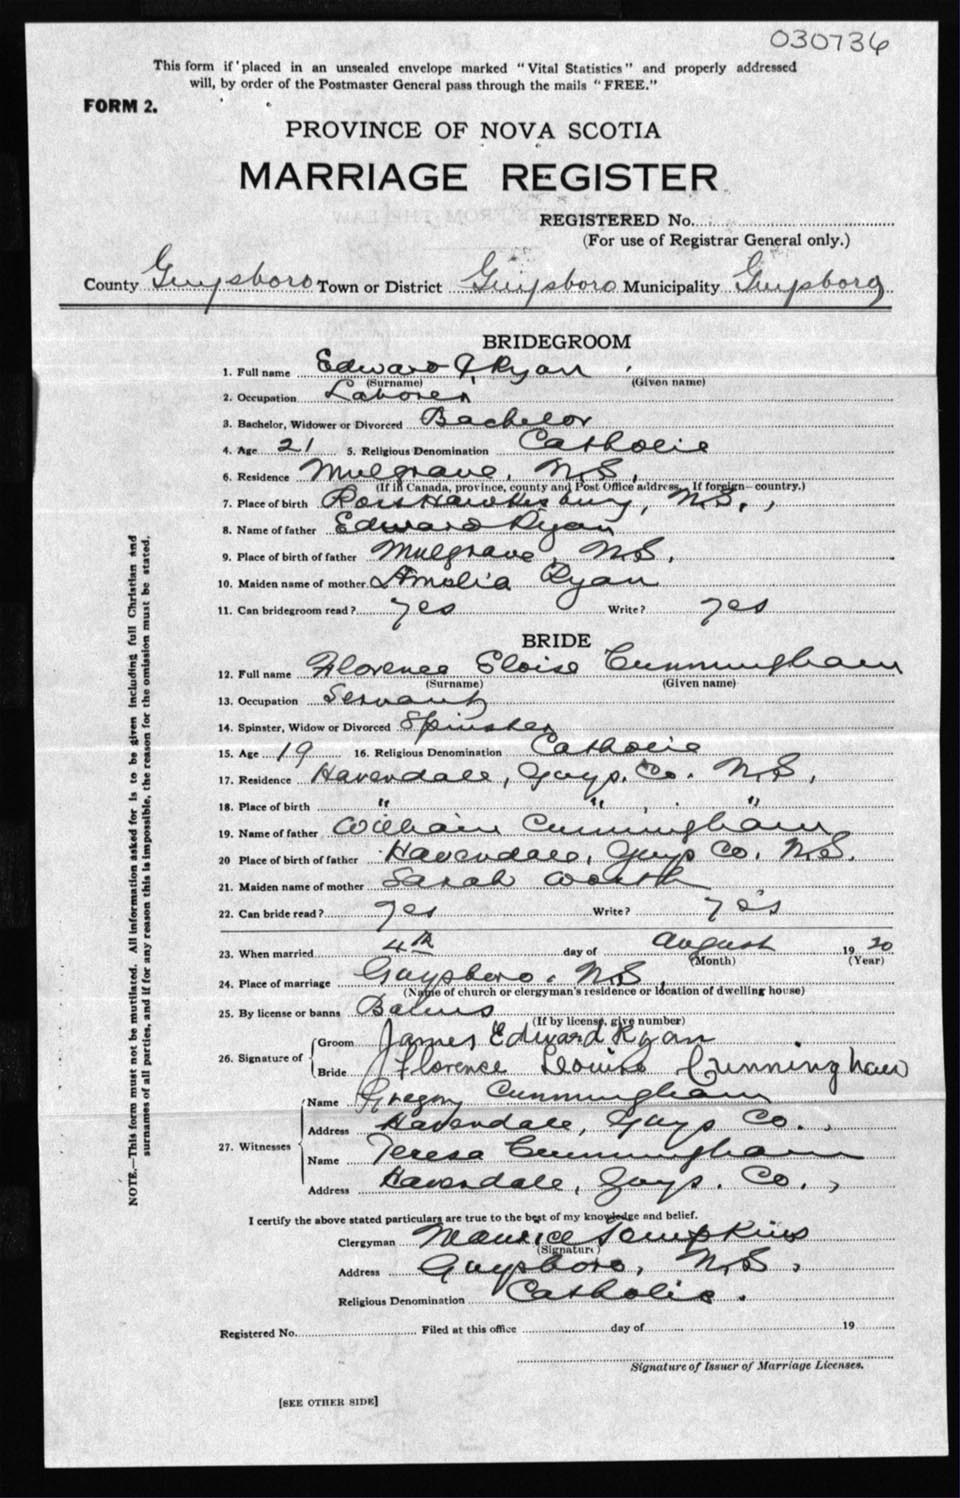 030736
This form if placed in an unsealed envelope marked "Vital Statistics" and properly addressed
will, by order of the Postmaster General pass through the mails "FREE."
FORM 2.
PROVINCE OF NOVA SCOTIA
MARRIAGE REGISTER
REGISTERED No.
(For use of Registrar General only.)
County Guysboro Town or District Guysboro Municipality Guysboro
BRIDEGROOM
1. Full name Edward J Ryan
(Surname) (Given name)
2. Occupation Laborer
3. Bachelor, Widower or Divorced Bachelor
4. Age 21 5. Religious Denomination Catholic
6. Residence Mulgrave, N.S.
(If in Canada, province, county and Post Office address. If foreign—country.)
7. Place of birth Port Hawkesbury, N.S.,
8. Name of father Edward Ryan
9. Place of birth of father Mulgrave, N.S.
10. Maiden name of mother Amelia Ryan
11. Can bridegroom read? yes Write? yes
BRIDE
12. Full name Florence Eloise Cunningham
(Surname) (Given name)
13. Occupation Servant
14. Spinster, Widow or Divorced Spinster
15. Age 19 16. Religious Denomination Catholic
17. Residence Havendale, Guys. Co. N.S.
18. Place of birth " " "
19. Name of father William Cunningham
20 Place of birth of father Havendale, Guys Co. N.S.
21. Maiden name of mother Sarah Worth
22. Can bride read? yes Write? yes
23. When married 4th day of August 19
(Month) (Year)
24. Place of marriage Guysboro, N.S.
(Name of church or clergyman's residence or location of dwelling house)
25. By license or banns
(If by license, give number)
26. Signature of Groom James Edward Ryan
Bride Florence Louise Cunningham
27. Witnesses Name Gregory Cunningham
Address Havendale, Guys Co.,
Name Teresa Cunningham
Address Havendale, Guys. Co.,
I certify the above stated particulars are true to the best of my knowledge and belief.
Clergyman Maurice Tompkins
(Signature)
Address Guysboro, N.S.,
Religious Denomination Catholic.
Registered No. Filed at this office day of 19
Signature of Issuer of Marriage Licenses.
[SEE OTHER SIDE]
NOTE.—This form must not be mutilated. All information asked for is to be given including full Christian and
surnames of all parties, and if for any reason this is impossible, the reason for the omission must be stated.